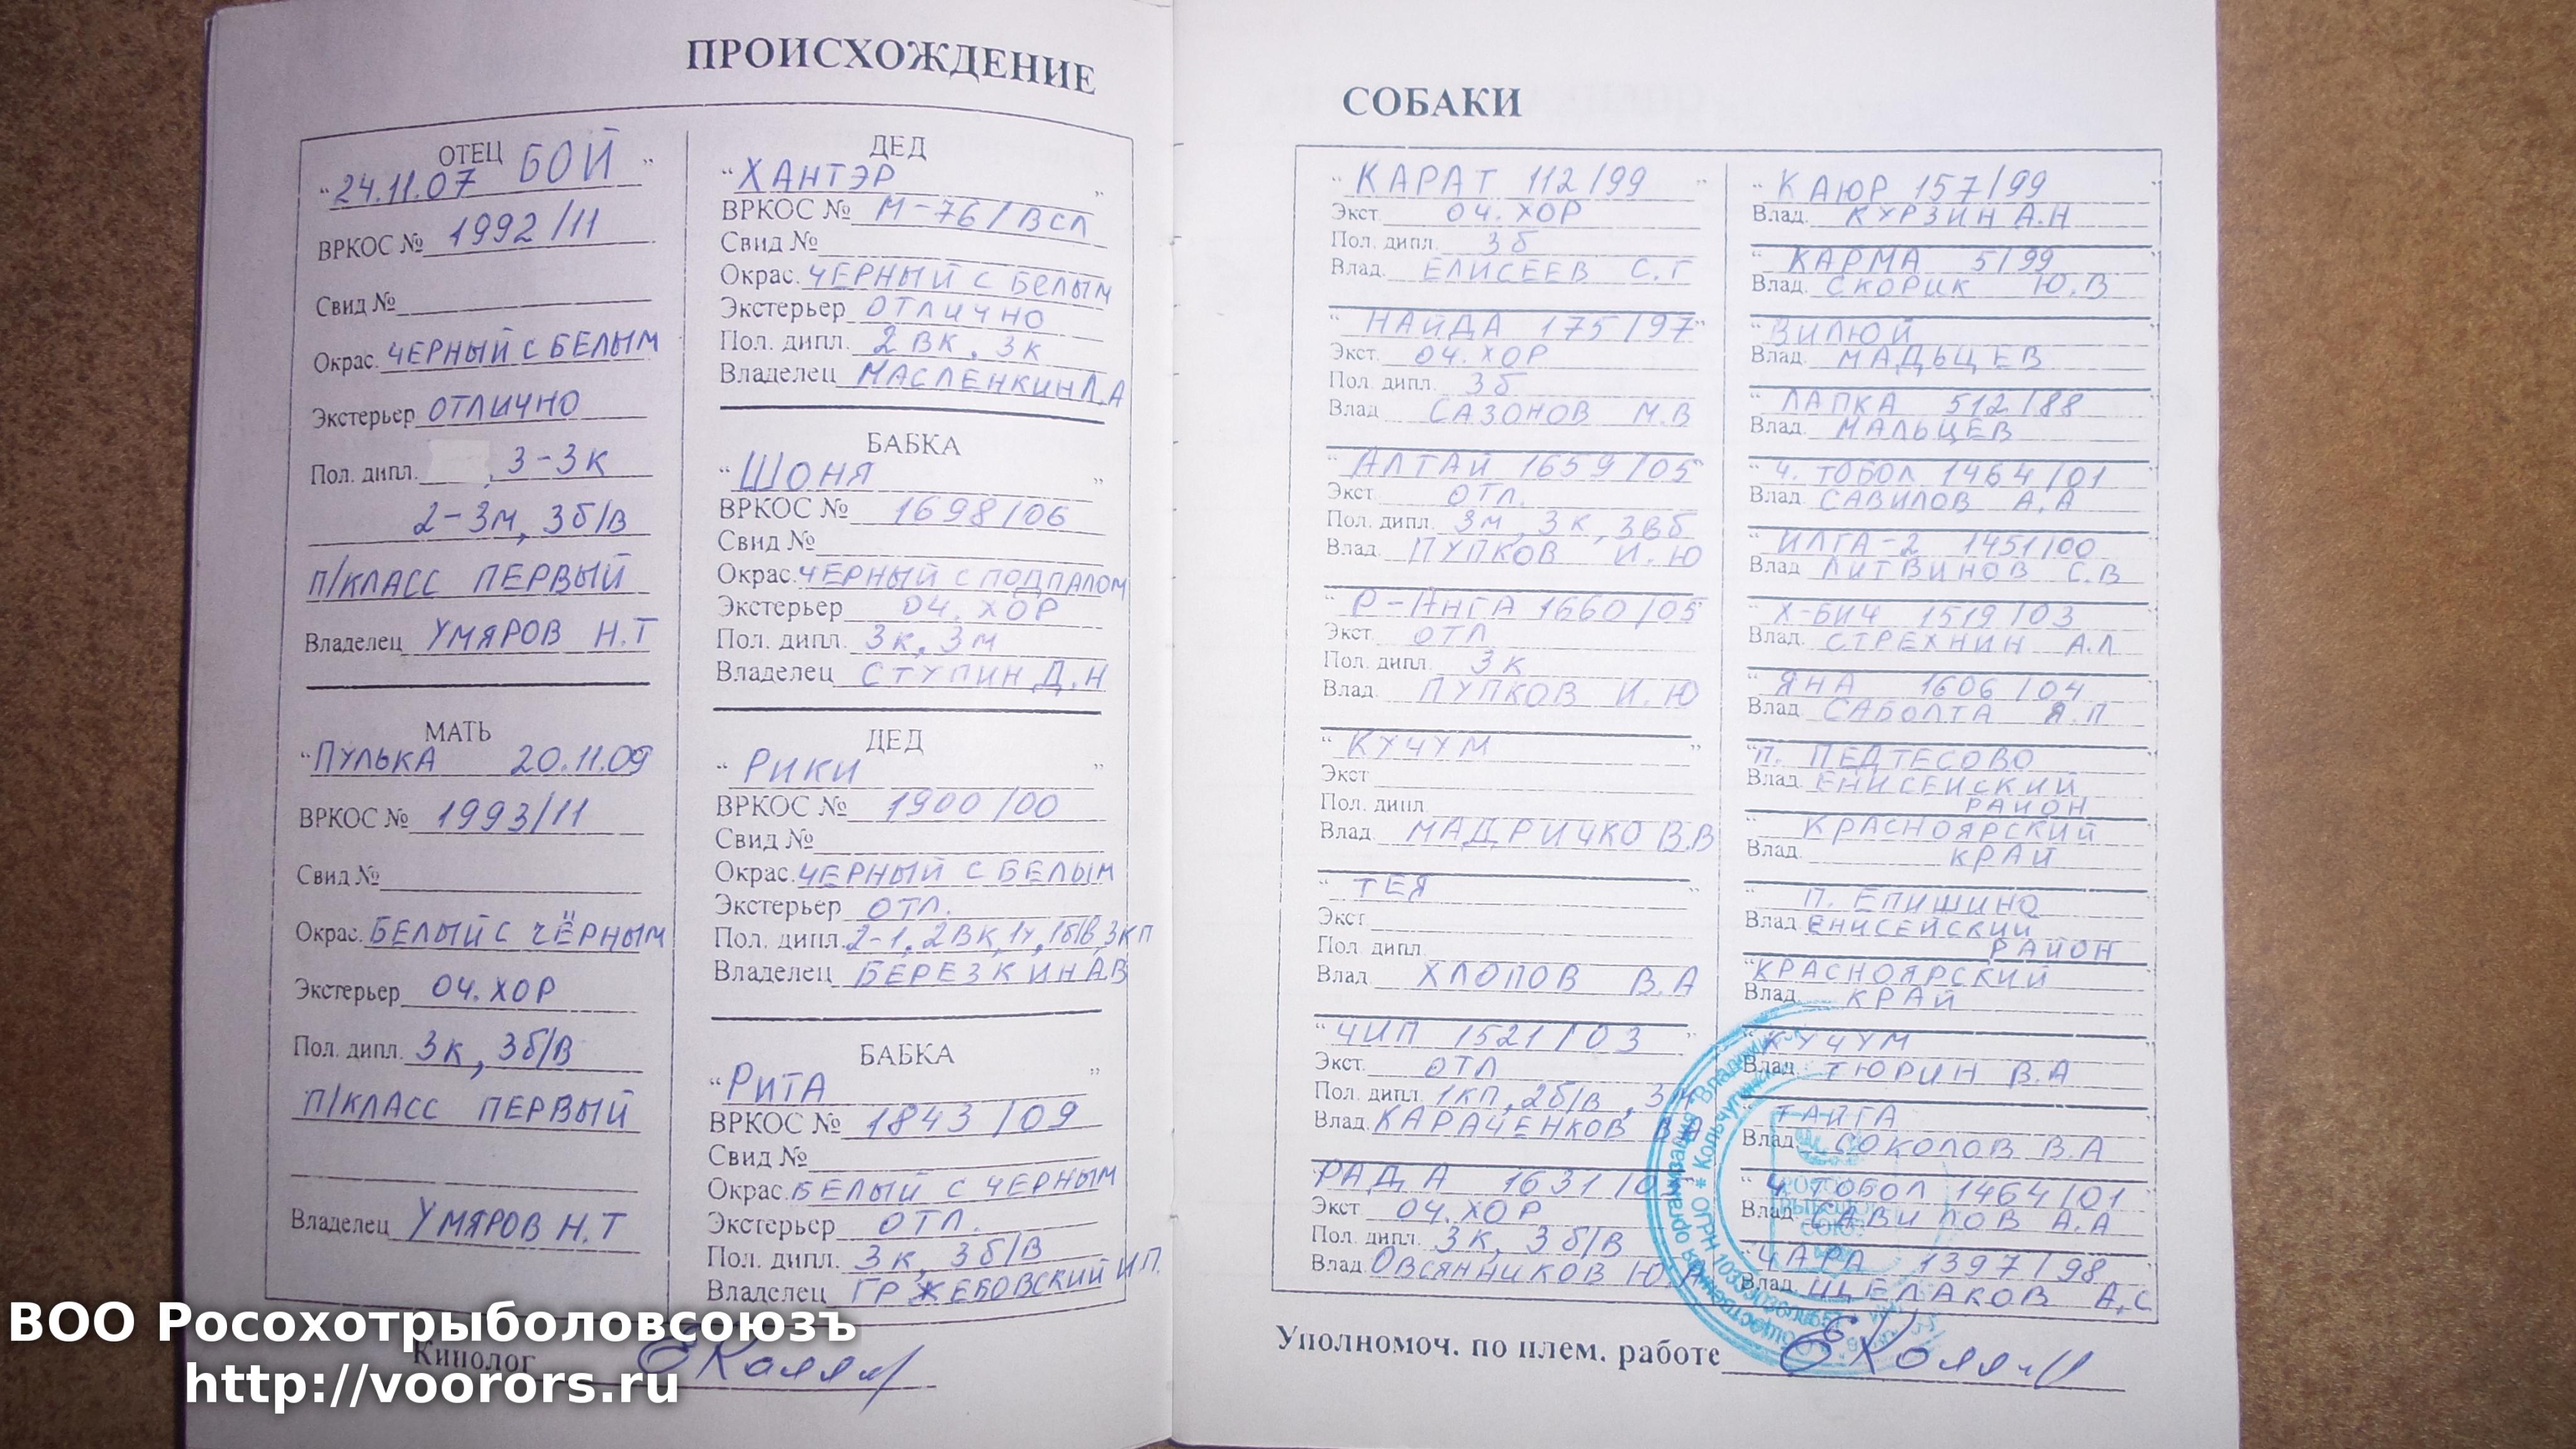 ПРОИСХОЖДЕНИЕ
ОТЕЦ
"24.11.07 БОЙ"
ВРКОС № 1992/11
Свид №
Окрас. ЧЕРНЫЙ С БЕЛЫМ
Экстерьер ОТЛИЧНО
Пол. дипл. , 3-3К
2-3М, 3Б/В
П/КЛАСС ПЕРВЫЙ
Владелец УМЯРОВ Н.Т
МАТЬ
"ПУЛЬКА 20.11.09
ВРКОС № 1993/11
Свид №
Окрас. БЕЛЫЙ С ЧЁРНЫМ
Экстерьер ОЧ. ХОР
Пол. дипл. 3К, 3Б/В
П/КЛАСС ПЕРВЫЙ
Владелец УМЯРОВ Н.Т
ДЕД
"ХАНТЭР"
ВРКОС № М-76/ВСЛ
Свид №
Окрас. ЧЕРНЫЙ С БЕЛЫМ
Экстерьер ОТЛИЧНО
Пол. дипл. 2ВК, 3К
Владелец МАСЛЕНКИН Л.А
БАБКА
"ШОНЯ"
ВРКОС № 1698/06
Свид №
Окрас. ЧЕРНЫЙ С ПОДПАЛОМ
Экстерьер ОЧ. ХОР
Пол. дипл. 3К, 3М
Владелец СТУПИН Д.Н
ДЕД
"РИКИ"
ВРКОС № 1900/00
Свид №
Окрас. ЧЕРНЫЙ С БЕЛЫМ
Экстерьер ОТЛ.
Пол. дипл. 2-1, 2ВК, 1У, 1Б/В, 3КП
Владелец БЕРЕЗКИН А.В
БАБКА
"РИТА"
ВРКОС № 1843/09
Свид №
Окрас. БЕЛЫЙ С ЧЕРНЫМ
Экстерьер ОТЛ.
Пол. дипл. 3К, 3Б/В
Владелец ГРЖЕБОВСКИЙ И.П.
Кинолог
СОБАКИ
"КАРАТ 112/99"
Экст. ОЧ. ХОР
Пол. дипл. 3Б
Влад. ЕЛИСЕЕВ С.Г
"НАЙДА 175/97"
Экст. ОЧ. ХОР
Пол. дипл. 3Б
Влад. САЗОНОВ М.В
"АЛТАЙ 1659/05"
Экст. ОТЛ.
Пол. дипл. 3М, 3К, 3ВБ
Влад. ПУПКОВ И.Ю
"Р-АНГА 1660/05"
Экст. ОТЛ
Пол. дипл. 3К
Влад. ПУПКОВ И.Ю
"КУЧУМ"
Экст
Пол. дипл.
Влад. МАДРИЧКО В.В
"ТЕЯ"
Экст
Пол. дипл.
Влад. ХЛОПОВ В.А
"ЧИП 1521/03"
Экст. ОТЛ
Пол. дипл. 1КП, 2Б/В, 3М
Влад. КАРАЧЕНКОВ В.А
"РАДА 1631/
Экст. ОЧ. ХОР
Пол. дипл. 3К, 3Б/В
Влад. ОВСЯННИКОВ Ю.А
"КАЮР 157/99"
Влад. КУРЗИН А.Н
"КАРМА 5/99"
Влад. СКОРИК Ю.В
"ВИЛЮЙ"
Влад. МАДЬЦЕВ
"ЛАПКА 512/88
Влад. МАЛЬЦЕВ
"Ч. ТОБОЛ 1464/01
Влад. САВИЛОВ А.А
"ИЛГА-2 1451/00
Влад ЛИТВИНОВ С.В
"Х-БИЧ 1519/03
Влад. СТРЕХНИН А.Л
"ЯНА 1606/04
Влад САБОЛТА Я.П
"П. ПЕДТЕСОВО
Влад. ЕНИСЕЙСКИЙ
РАЙОН
"КРАСНОЯРСКИЙ
Влад. КРАЙ
"П. ЕПИШИНО
Влад. ЕНИСЕЙСКИЙ
РАЙОН
"КРАСНОЯРСКИЙ
Влад. КРАЙ
"КУЧУМ
Влад. ТЮРИН В.А
"ТАЙГА
Влад. СОКОЛОВ В.А
"Ч. ТОБОЛ 1464/01
Влад. САВИЛОВ А.А
"ЧАРА 1397/98
Влад. ЩЕЛАКОВ А.С
Уполномоч. по плем. работе
ВОО Росохотрыболовсоюзъ
http://voorors.ru